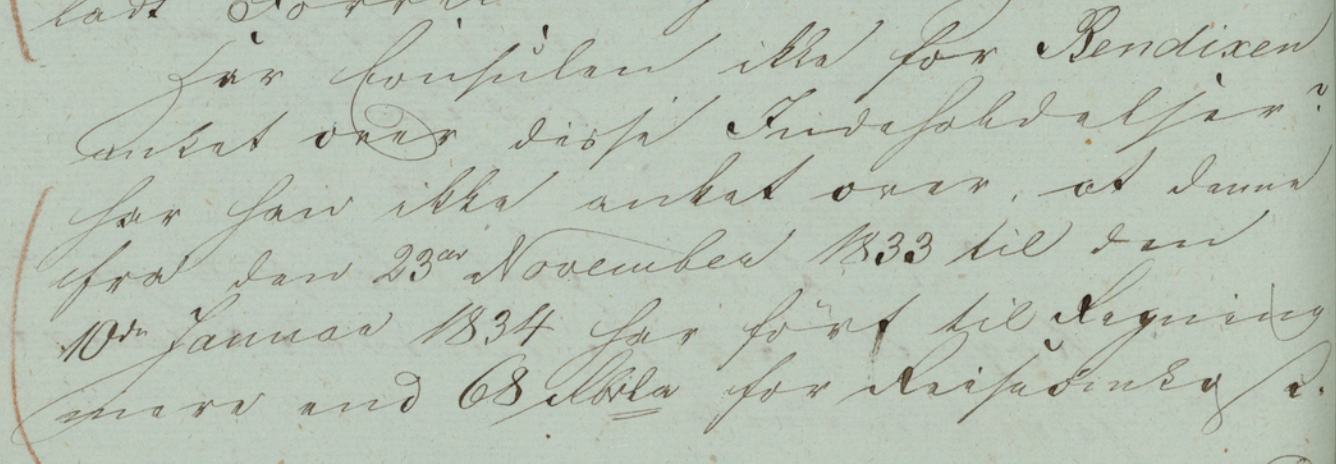 ladt
Har Consulen ikke for Bendixen
anket over disse Indeholdelser?
har han ikke anket over, at denne
fra den 23de November 1833 til den
10de Januar 1834 har ført til Regning
mere end 68 Rbdlr for